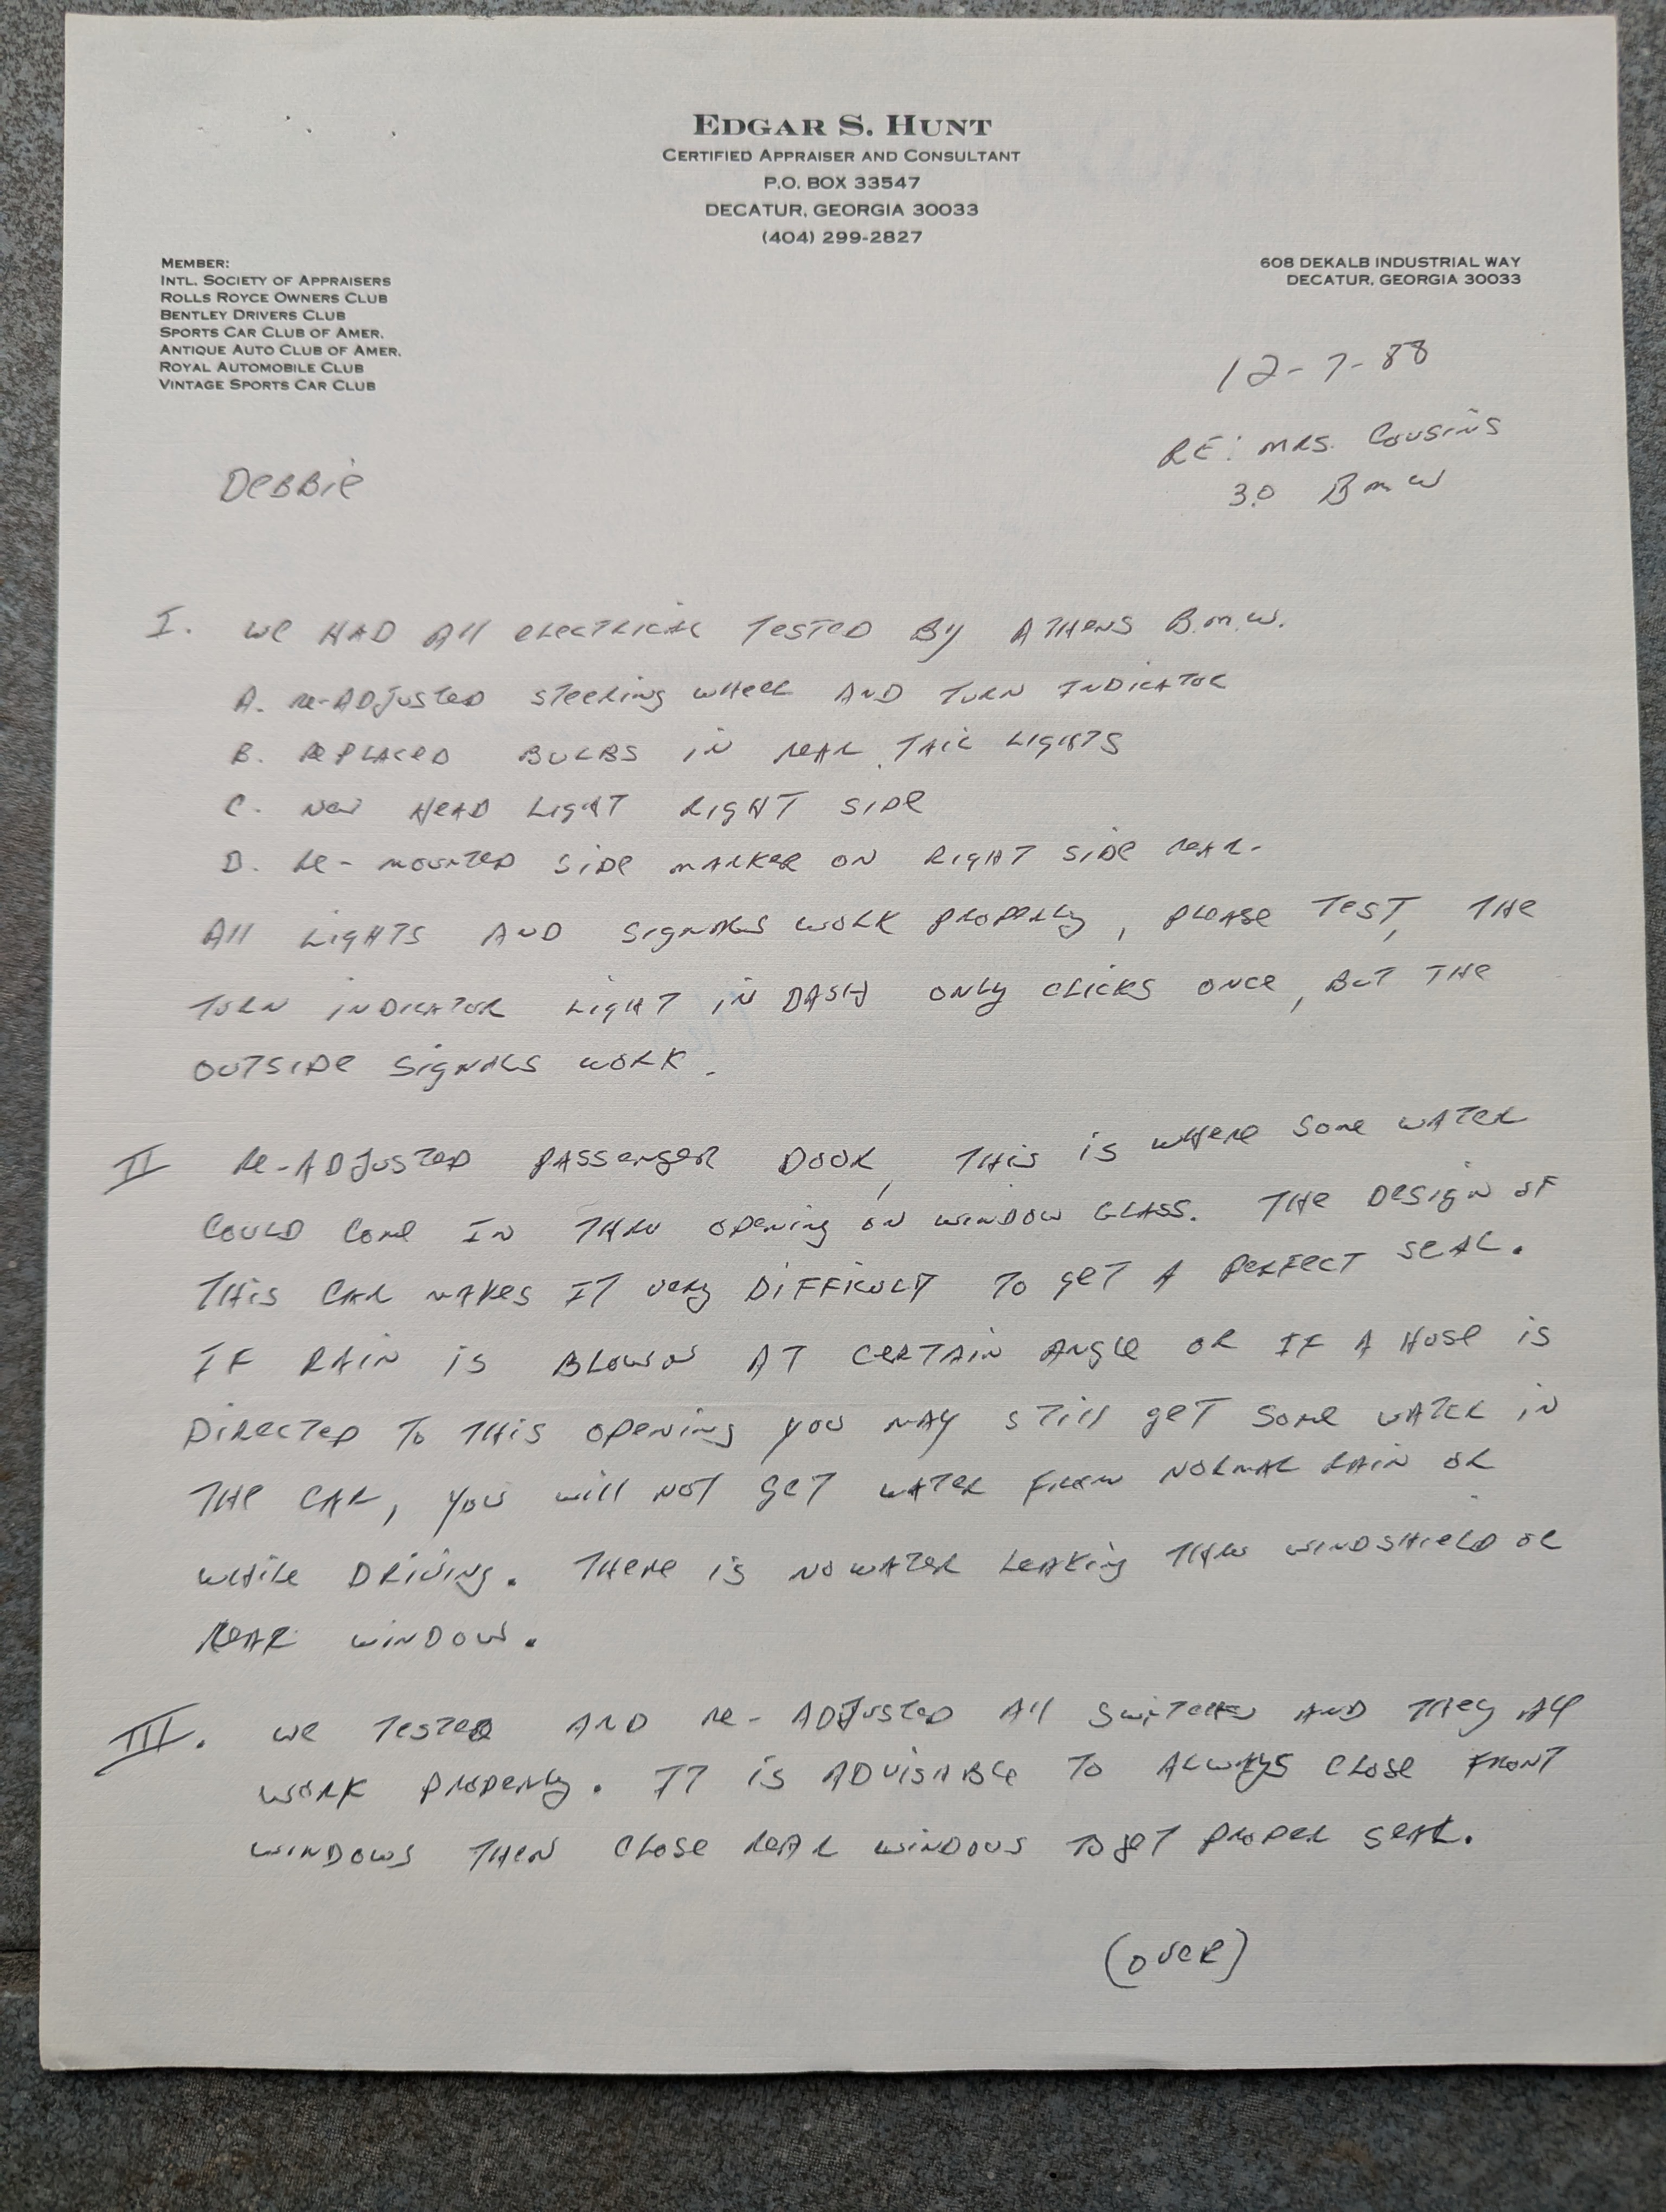 EDGAR S. HUNT
CERTIFIED APPRAISER AND CONSULTANT
P.O. BOX 33547
DECATUR, GEORGIA 30033
(404) 299-2827
MEMBER:
INTL. SOCIETY OF APPRAISERS
ROLLS ROYCE OWNERS CLUB
BENTLEY DRIVERS CLUB
SPORTS CAR CLUB OF AMER.
ANTIQUE AUTO CLUB OF AMER.
ROYAL AUTOMOBILE CLUB
VINTAGE SPORTS CAR CLUB
608 DEKALB INDUSTRIAL WAY
DECATUR, GEORGIA 30033
12-7-88
RE: MRS. COUSINS
3.0 BMW
DEBBIE
I. WE HAD ALL ELECTRICAL TESTED BY ATHENS B.M.W.
A. RE-ADJUSTED STEERING WHEEL AND TURN INDICATOR
B. REPLACED BULBS IN REAR TAIL LIGHTS
C. NEW HEAD LIGHT RIGHT SIDE
D. RE-MOUNTED SIDE MARKER ON RIGHT SIDE REAR.
ALL LIGHTS AND SIGNALS WORK PROPERLY, PLEASE TEST, THE
TURN INDICATOR LIGHT IN DASH ONLY CLICKS ONCE, BUT THE
OUTSIDE SIGNALS WORK.
II RE-ADJUSTED PASSENGER DOOR, THIS IS WHERE SOME WATER
COULD COME IN THRU OPENING ON WINDOW GLASS. THE DESIGN OF
THIS CAR MAKES IT VERY DIFFICULT TO GET A PERFECT SEAL.
IF RAIN IS BLOWN AT CERTAIN ANGLE OR IF A HOSE IS
DIRECTED TO THIS OPENING YOU MAY STILL GET SOME WATER IN
THE CAR, YOU WILL NOT GET WATER FROM NORMAL RAIN OR
WHILE DRIVING. THERE IS NO WATER LEAKING THRU WINDSHIELD OR
REAR WINDOW.
III. WE TESTED AND RE-ADJUSTED ALL SWITCHES AND THEY ALL
WORK PROPERLY. IT IS ADVISABLE TO ALWAYS CLOSE FRONT
WINDOWS THEN CLOSE REAR WINDOWS TO GET PROPER SEAL.
(OVER)